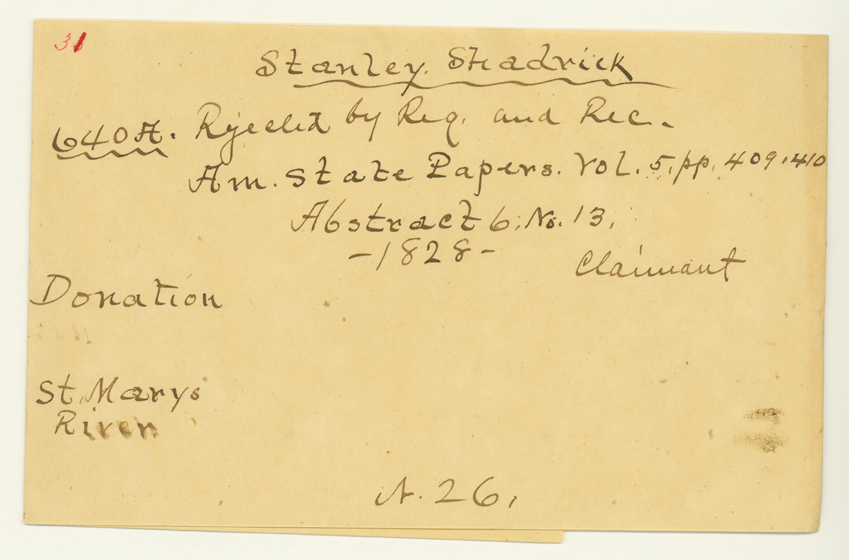 31
Stanley. Shadrick
640A. Rejected by Reg. and Rec.
Am. State Papers. Vol. 5, pp. 409.410
Abstract 6; No. 13,
-1828-
Claimant
Donation
St. Marys
River
N. 26,